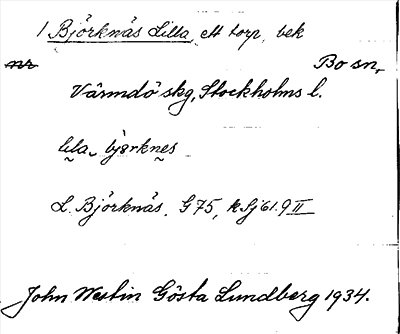 1 Björknäs Lilla, ett torp, bek
nr Bo sn,
Värmdö skg, Stockholms l.
lıla bjırknes
L. Björknäs. G75, k Sj 61.9 II
John Westin Gösta Lundberg 1934.